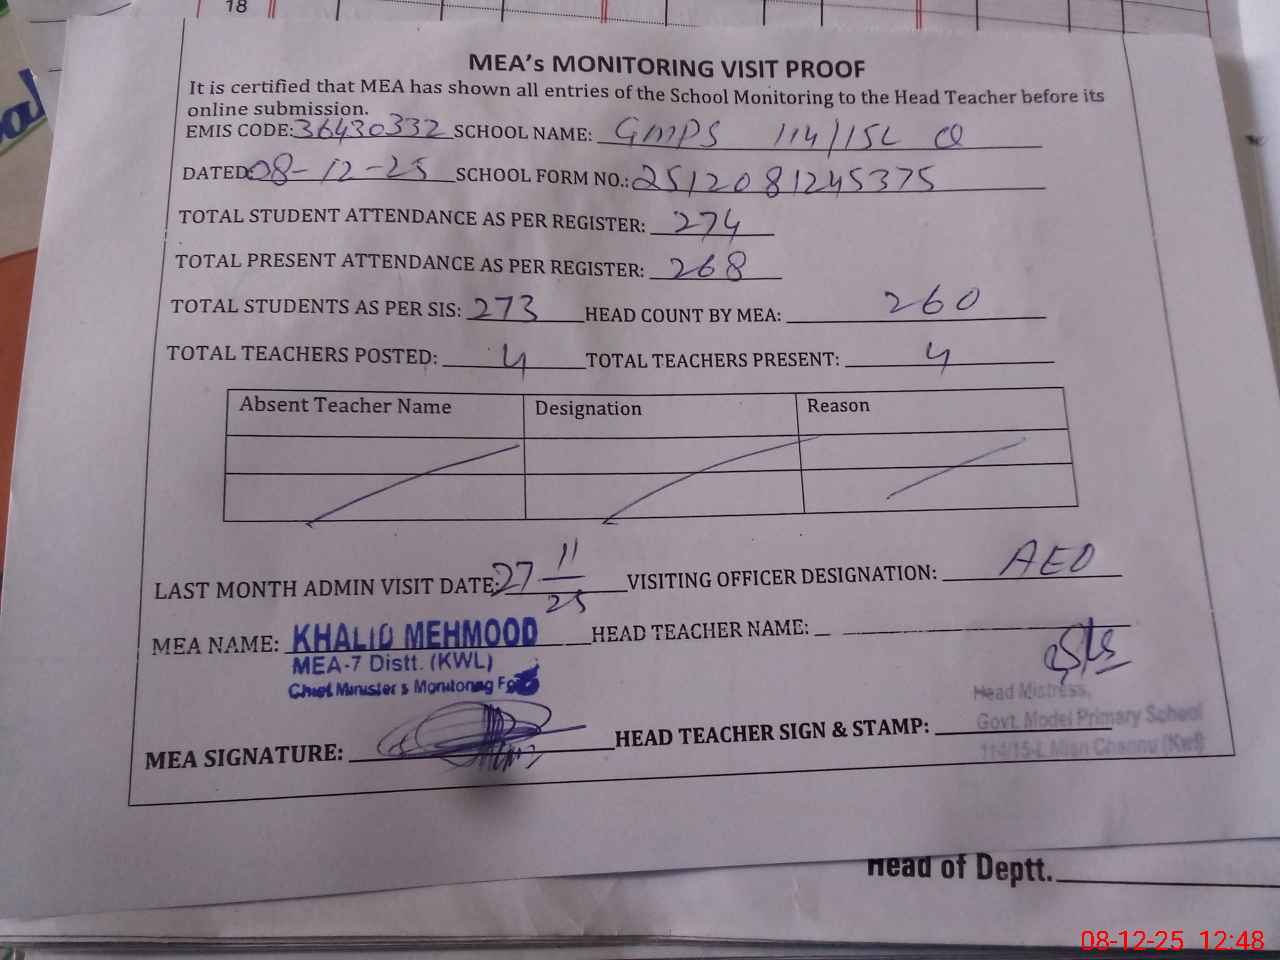 18
MEA's MONITORING VISIT PROOF
It is certified that MEA has shown all entries of the School Monitoring to the Head Teacher before its
online submission.
EMIS CODE: 36430332 SCHOOL NAME: GMPS 114/15L
DATED: 08-12-25 SCHOOL FORM NO.: 2512081245375
TOTAL STUDENT ATTENDANCE AS PER REGISTER: 274
TOTAL PRESENT ATTENDANCE AS PER REGISTER: 268
TOTAL STUDENTS AS PER SIS: 273 HEAD COUNT BY MEA: 260
TOTAL TEACHERS POSTED: 4 TOTAL TEACHERS PRESENT: 4
Absent Teacher Name Designation Reason
LAST MONTH ADMIN VISIT DATE: 27 11/25 VISITING OFFICER DESIGNATION: AEO
MEA NAME: KHALID MEHMOOD HEAD TEACHER NAME:
MEA-7 Distt. (KWL)
Chief Minister's Monitoring
Head Mistress,
Govt. Model Primary School
114/15-L Mian Channu (Kwl)
MEA SIGNATURE: HEAD TEACHER SIGN & STAMP:
Head of Deptt.
08-12-25 12:48